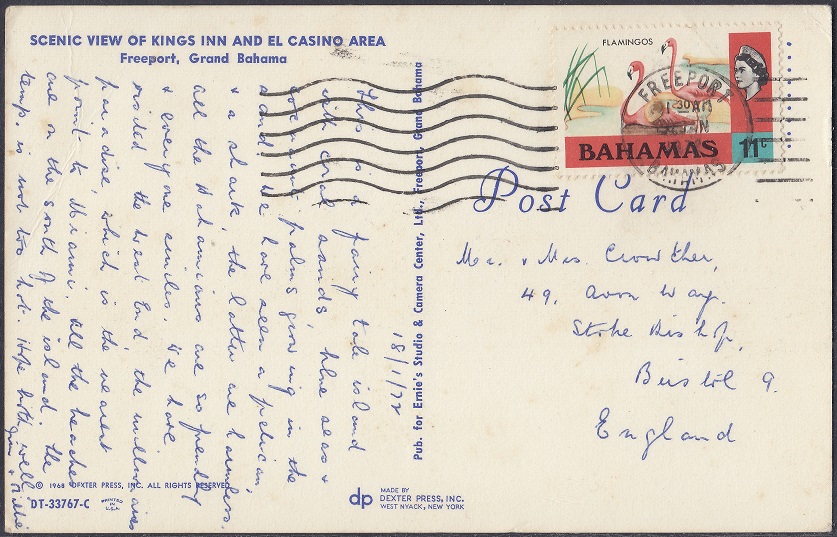 SCENIC VIEW OF KINGS INN AND EL CASINO AREA
Freeport, Grand Bahama
18/1/72
This is a fairy tale island
with coral sands, blue seas &
coconut palms growing in the
sand. We have seen a pelican
& a shark, the latter are harmless.
All the Bahamians are so friendly
& everyone smiles. We have
visited the West End the millionaires
paradise, which is the nearest
point to Miami. All the beaches
are on the south of the island. The
temp. is not too hot. Hope both well
© 1968 DEXTER PRESS, INC. ALL RIGHTS RESERVED
DT-33767-C
PRINTED IN U.S.A.
Pub. for Ernie's Studio & Camera Center, Ltd., Freeport, Grand Bahama
dp
MADE BY
DEXTER PRESS, INC.
WEST NYACK, NEW YORK
FLAMINGOS
BAHAMAS 11c
FREEPORT
30 AM
BAHAMAS
Post Card
Mr. & Mrs. Crowther,
49, Avon Way,
Stoke Bishop,
Bristol 9.
England